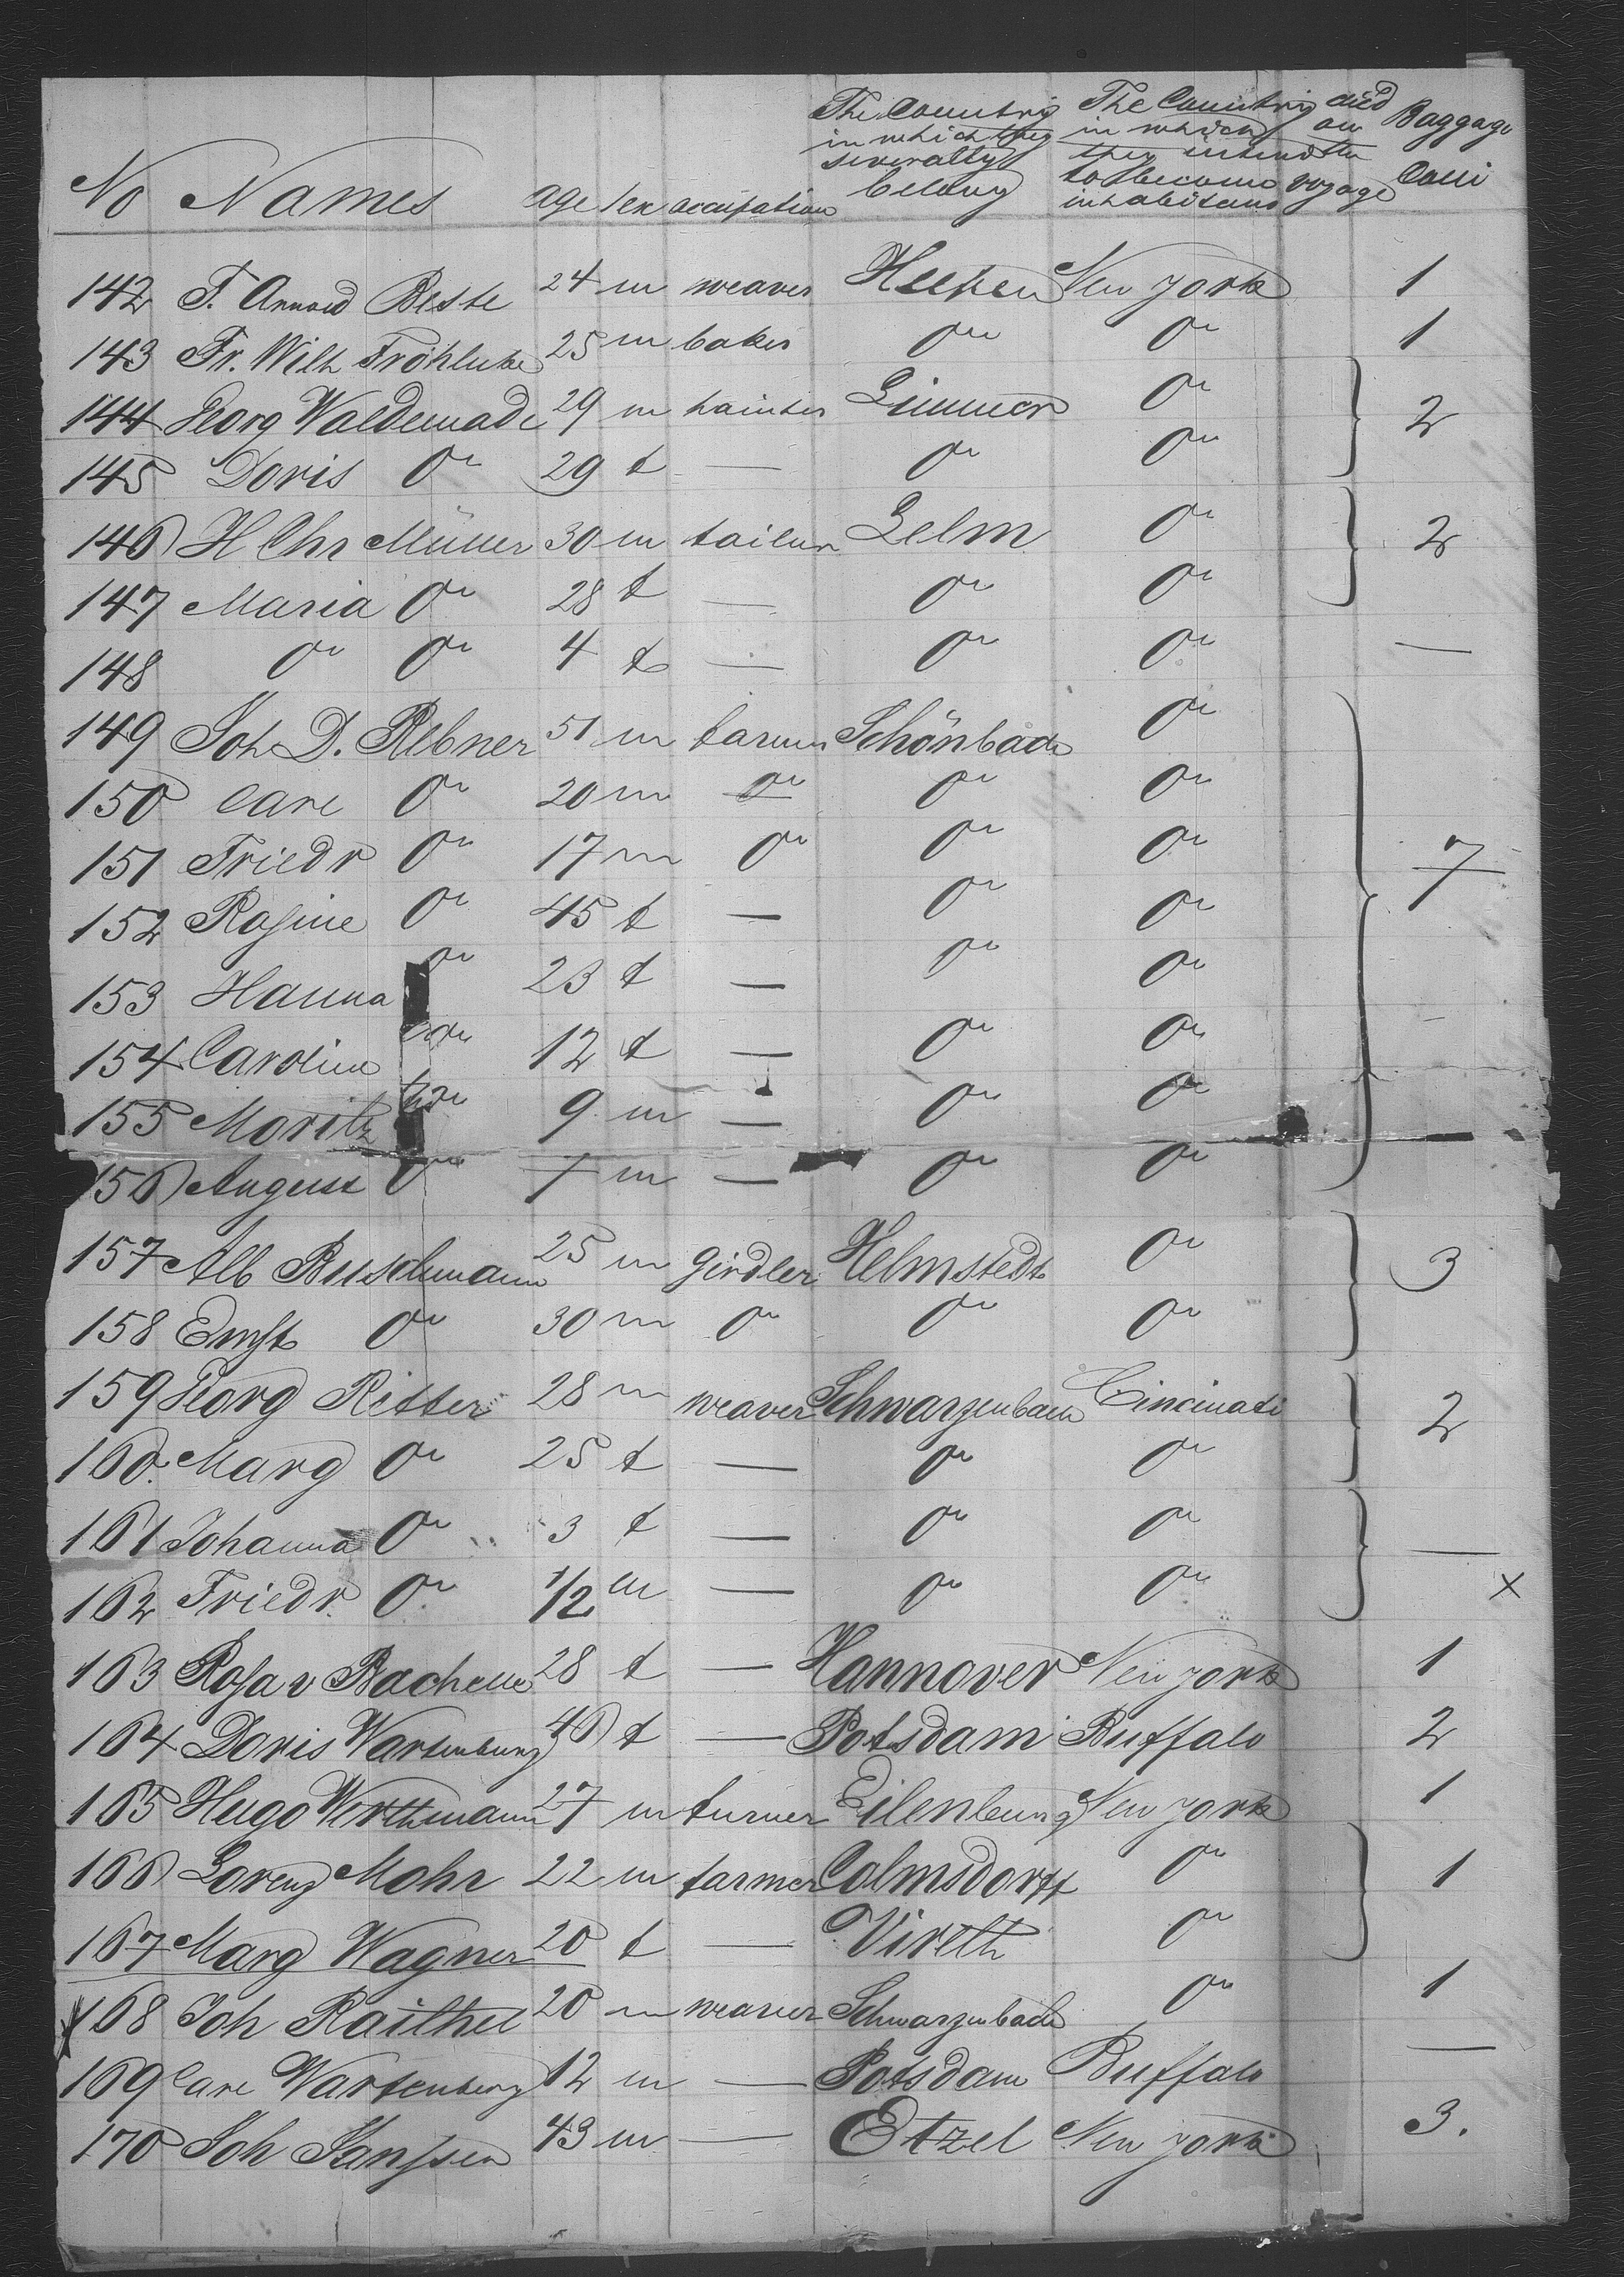 No Names age sex occupation The Country in which they severally belong The Country in which they intend to become inhabitans died on the voyage Baggage Colli
142 F. Arnold Beste 24 m weaver Heepen New York 1
143 Fr. Wilh Fröhleke 25 m baker do do 1
144 Georg Waldemade 29 m painter Limmer do 2
145 Doris do 29 f — do do
146 H Chr Müller 30 m tailor Lelm do 2
147 Maria do 28 f — do do
148 do do 4 f — do do —
149 Joh D. Rebner 51 m farmer Schönbach do
150 Carl do 20 m do do do
151 Friedr do 17 m do do do 7
152 Rosine do 45 f — do do
153 Hanna do 23 f — do do
154 Caroline do 12 f — do do
155 Moritz do 9 m — do do —
156 August do 7 m — do do
157 Alb Buschmann 25 m girdler Helmstedt do 3
158 Ernst do 30 m do do do
159 Georg Ritter 28 m weaver Schwarzenbach Cincinati 2
160. Marg do 25 f — do do
161 Johanna do 3 f — do do —
162 Friedr. do 1/2 m — do do x
163 Rosa v Bachelle 28 f — Hannover New York 1
164 Doris Wartenburg 46 f — Potsdam Buffalo 2
165 Hugo Werthmann 27 m turner Eilenburg New York 1
166 Lorenz Mohr 22 m farmer Colmsdorff do 1
167 Marg Wagner 20 f — Vireth do
168 Joh Raithel 20 m weaver Schwarzenbach do 1
169 Carl Wartenberg 12 m — Potsdam Buffalo —
170 Joh Janssen 43 m — Etzel New York 3.